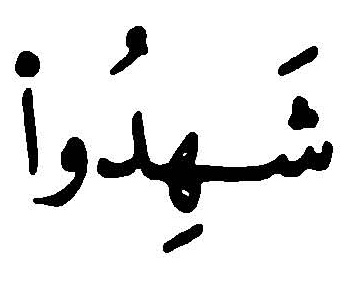 شَهِدُوا۟